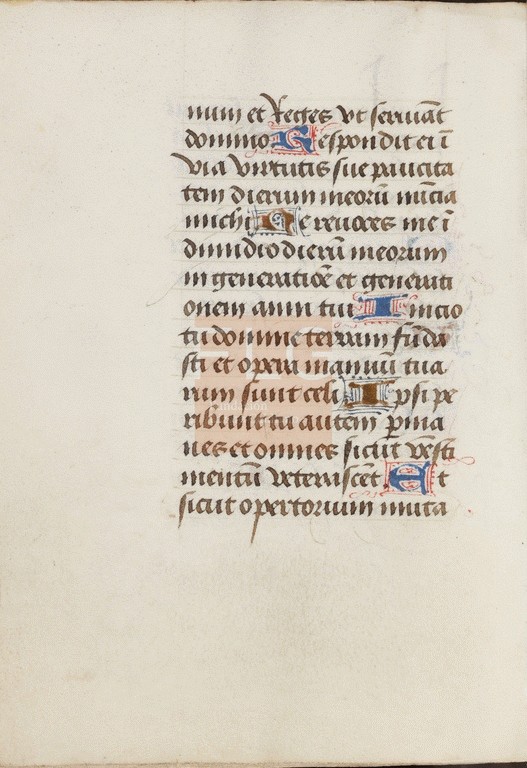 num et Reges vt seruiāt
domino Respondit ei ī
via virtutis sue paucita
tem dierum meorū nūcia
michi Ne reuoces me ī
dimidio dierū meorum
in generatiōē et generati
onem anni tui Inicio
tu domine terram fūda
sti et opera manuū tua
rum sunt celi Ipsi pe
ribunt tu autem p̄ma
nes et omnes sicut vesti
mentū veterascēt Et
sicut opertorium muta